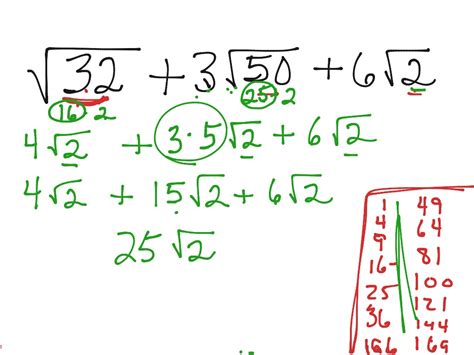 √32 + 3√50 + 6√2
16 2 25 2
4√2 + 3·5√2 + 6√2
4√2 + 15√2 + 6√2
25√2
1 49
4 64
9 81
16 100
25 121
36 144
169